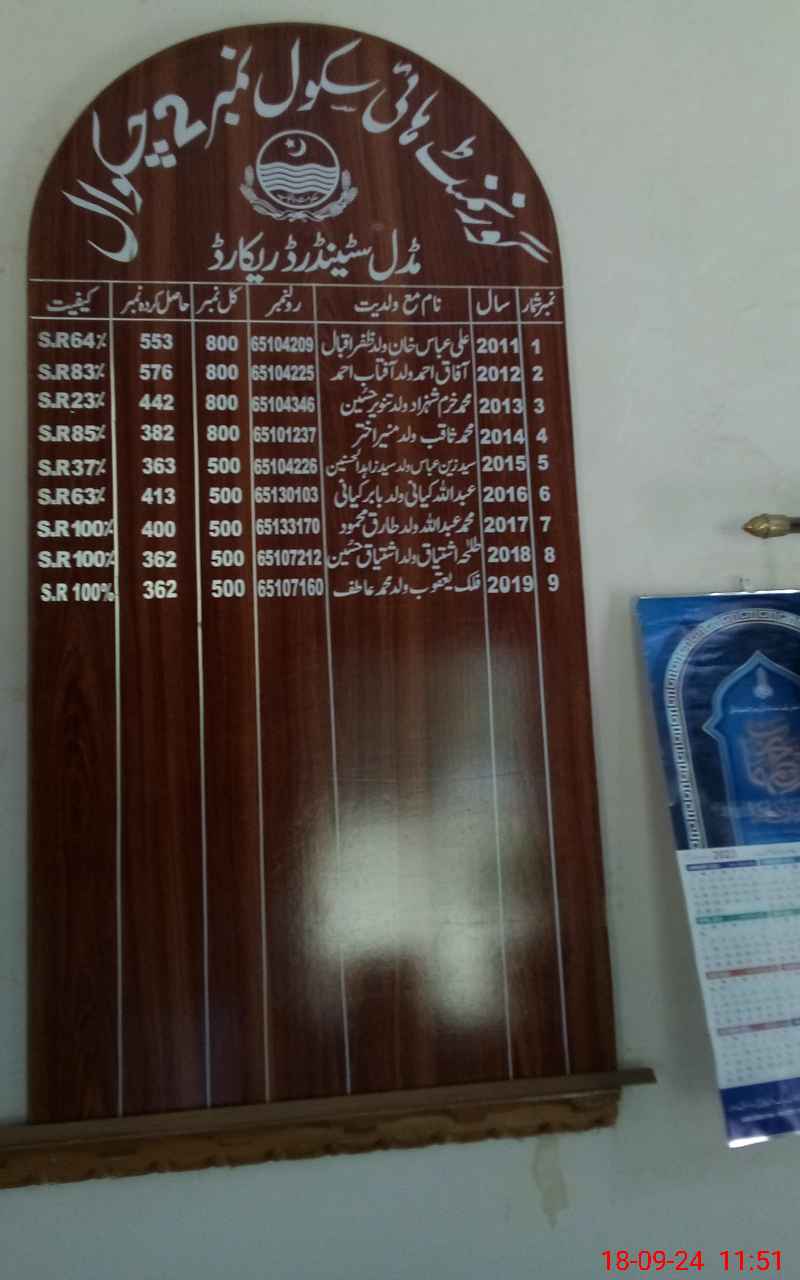 گورنمنٹ ہائی سکول نمبر 2 چکوال
مڈل سٹینڈرڈ ریکارڈ
نمبر شمار سال نام مع ولدیت رولنمبر کل نمبر حاصل کردہ نمبر کیفیت
1 2011 علی عباس خان ولد ظفر اقبال 65104209 800 553 S.R64٪
2 2012 آفاق احمد ولد آفتاب احمد 65104225 800 576 S.R83٪
3 2013 محمد خرم شہزاد ولد تنویر حسین 65104346 800 442 S.R23٪
4 2014 محمد ثاقب ولد منیر اختر 65101237 800 382 S.R85٪
5 2015 سید زین عباس ولد سید زاہد الحسنین 65104226 500 363 S.R37٪
6 2016 عبداللہ کیانی ولد بابر کیانی 65130103 500 413 S.R63٪
7 2017 محمد عبداللہ ولد طارق محمود 65133170 500 400 S.R100٪
8 2018 طلحہ اشتیاق ولد اشتیاق حسین 65107212 500 362 S.R100٪
9 2019 فلک یعقوب ولد محمد عاطف 65107160 500 362 S.R 100%
18-09-24 11:51